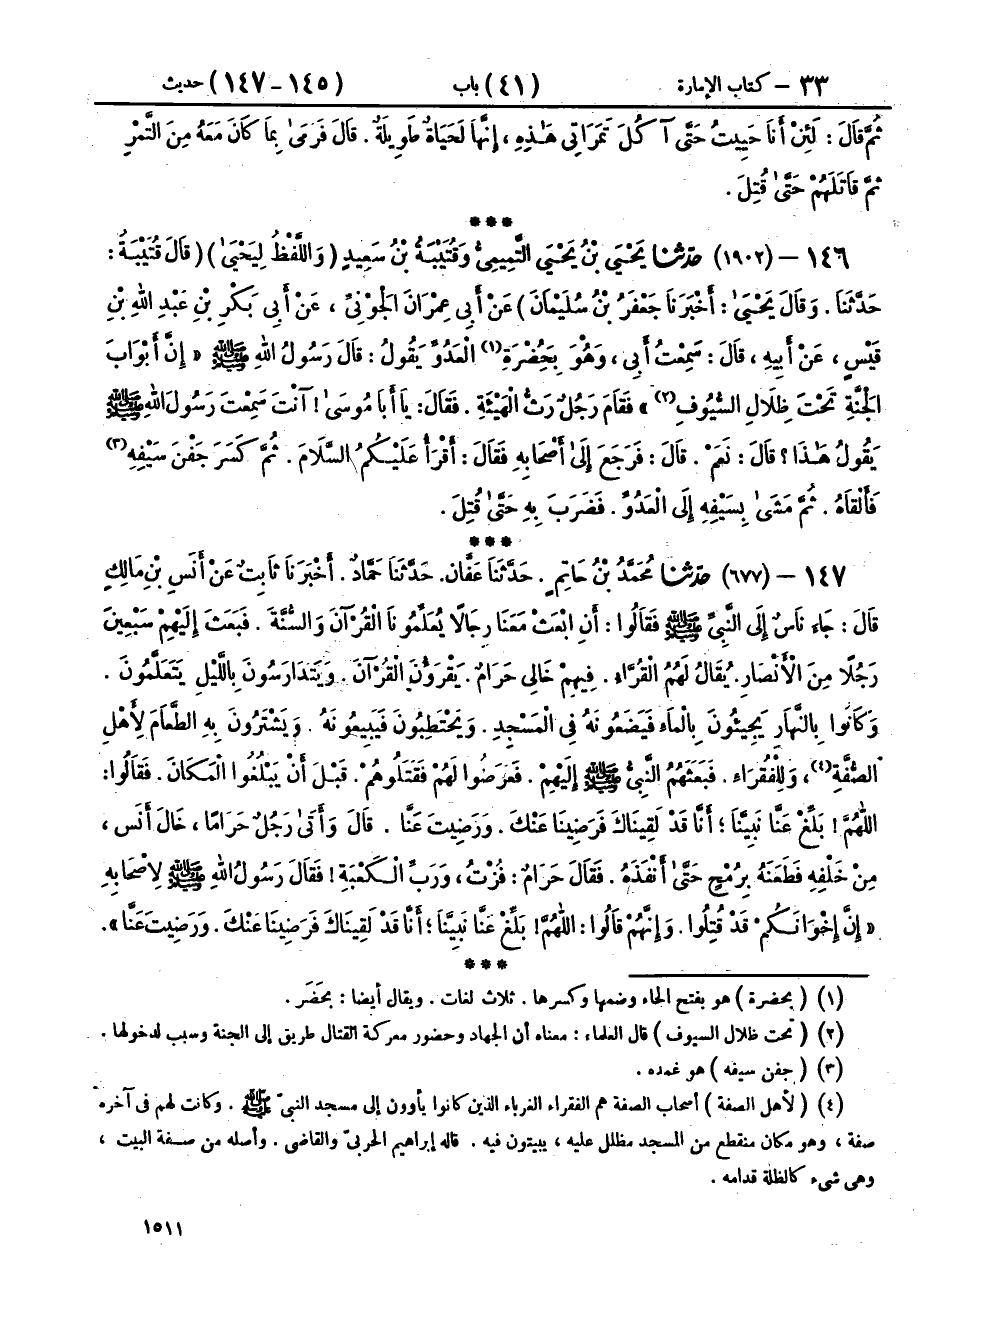 ٣٣ – كتاب الإمارة (٤١) باب (١٤٥-١٤٧) حديث
ثُمَّ قَالَ : لَئِنْ أَنَا حَيِيتُ حَتَّى آكُلَ تَمَرَاتِي هَٰذِهِ ، إِنَّهَا لَحَيَاةٌ طَوِيلَةٌ . قَالَ فَرَمَىٰ بِمَا كَانَ مَعَهُ مِنَ التَّمْرِ
ثُمَّ قَاتَلَهُمْ حَتَّىٰ قُتِلَ .
***
١٤٦ – (١٩٠٢) حَدَّثَنَا يَحْيَى بْنُ يَحْيَى التَّمِيمِيُّ وَقُتَيْبَةُ بْنُ سَعِيدٍ ( وَاللَّفْظُ لِيَحْيَىٰ ) ( قَالَ قُتَيْبَةُ :
حَدَّثَنَا . وَقَالَ يَحْيَىٰ : أَخْبَرَنَا جَعْفَرُ بْنُ سُلَيْمَانَ ) عَنْ أَبِي عِمْرَانَ الْجَوْنِيِّ ، عَنْ أَبِي بَكْرِ بْنِ عَبْدِ اللهِ بْنِ
قَيْسٍ ، عَنْ أَبِيهِ ، قَالَ : سَمِعْتُ أَبِي ، وَهُوَ بِحَضْرَةِ(١) الْعَدُوِّ يَقُولُ : قَالَ رَسُولُ اللهِ ﷺ « إِنَّ أَبْوَابَ
الْجَنَّةِ تَحْتَ ظِلَالِ السُّيُوفِ(٢) » فَقَامَ رَجُلٌ رَثُّ الْهَيْئَةِ . فَقَالَ: يَا أَبَا مُوسَىٰ ! آنْتَ سَمِعْتَ رَسُولَ اللهِ ﷺ
يَقُولُ هَٰذَا ؟ قَالَ : نَعَمْ . قَالَ : فَرَجَعَ إِلَىٰ أَصْحَابِهِ فَقَالَ : أَقْرَأُ عَلَيْكُمُ السَّلَامَ . ثُمَّ كَسَرَ جَفْنَ سَيْفِهِ(٣)
فَأَلْقَاهُ . ثُمَّ مَشَىٰ بِسَيْفِهِ إِلَى الْعَدُوِّ . فَضَرَبَ بِهِ حَتَّىٰ قُتِلَ .
***
١٤٧ – (٦٧٧) حَدَّثَنَا مُحَمَّدُ بْنُ حَاتِمٍ . حَدَّثَنَا عَفَّانُ. حَدَّثَنَا حَمَّادٌ . أَخْبَرَنَا ثَابِتٌ عَنْ أَنَسِ بْنِ مَالِكٍ
قَالَ : جَاءَ نَاسٌ إِلَى النَّبِيِّ ﷺ فَقَالُوا : أَنِ ابْعَثْ مَعَنَا رِجَالًا يُعَلِّمُونَا الْقُرْآنَ وَالسُّنَّةَ . فَبَعَثَ إِلَيْهِمْ سَبْعِينَ
رَجُلًا مِنَ الْأَنْصَارِ. يُقَالُ لَهُمُ الْقُرَّاءُ . فِيهِمْ خَالِي حَرَامٌ . يَقْرَؤُنَ الْقُرْآنَ . وَيَتَدَارَسُونَ بِاللَّيْلِ يَتَعَلَّمُونَ .
وَكَانُوا بِالنَّهَارِ يَجِيئُونَ بِالْمَاءِ فَيَضَعُونَهُ فِي الْمَسْجِدِ . وَيَحْتَطِبُونَ فَيَبِيعُونَهُ . وَيَشْتَرُونَ بِهِ الطَّعَامَ لِأَهْلِ
الصُّفَّةِ(٤)، وَلِلْفُقَرَاءِ . فَبَعَثَهُمُ النَّبِيُّ ﷺ إِلَيْهِمْ . فَعَرَضُوا لَهُمْ فَقَتَلُوهُمْ . قَبْلَ أَنْ يَبْلُغُوا الْمَكَانَ . فَقَالُوا:
اللَّهُمَّ ! بَلِّغْ عَنَّا نَبِيَّنَا ؛ أَنَّا قَدْ لَقِينَاكَ فَرَضِينَا عَنْكَ . وَرَضِيتَ عَنَّا . قَالَ وَأَتَىٰ رَجُلٌ حَرَامًا ، خَالَ أَنَسٍ ،
مِنْ خَلْفِهِ فَطَعَنَهُ بِرُمْحٍ حَتَّىٰ أَنْفَذَهُ . فَقَالَ حَرَامٌ : فُزْتُ ، وَرَبِّ الْكَعْبَةِ ! فَقَالَ رَسُولُ اللهِ ﷺ لِأَصْحَابِهِ
« إِنَّ إِخْوَانَكُمْ قَدْ قُتِلُوا . وَإِنَّهُمْ قَالُوا : اللَّهُمَّ! بَلِّغْ عَنَّا نَبِيَّنَا ؛ أَنَّا قَدْ لَقِينَاكَ فَرَضِينَا عَنْكَ . وَرَضِيتَ عَنَّا ».
***
(١) ( بحضرة ) هو بفتح الحاء وضمها وكسرها . ثلاث لغات . ويقال أيضا : بحَضَر .
(٢) ( تحت ظلال السيوف ) قال العلماء : معناه أن الجهاد وحضور معركة القتال طريق إلى الجنة وسبب لدخولها .
(٣) ( جفن سيفه ) هو غمده .
(٤) ( لأهل الصفة ) أصحاب الصفة هم الفقراء الغرباء الذين كانوا يأوون إلى مسجد النبيّ ﷺ . وكانت لهم فى آخره
صفة ، وهو مكان منقطع من المسجد مظلل عليه ، يبيتون فيه . قاله إبراهيم الحربىّ والقاضى . وأصله من صفة البيت ،
وهى شىء كالظلة قدامه .
١٥١١